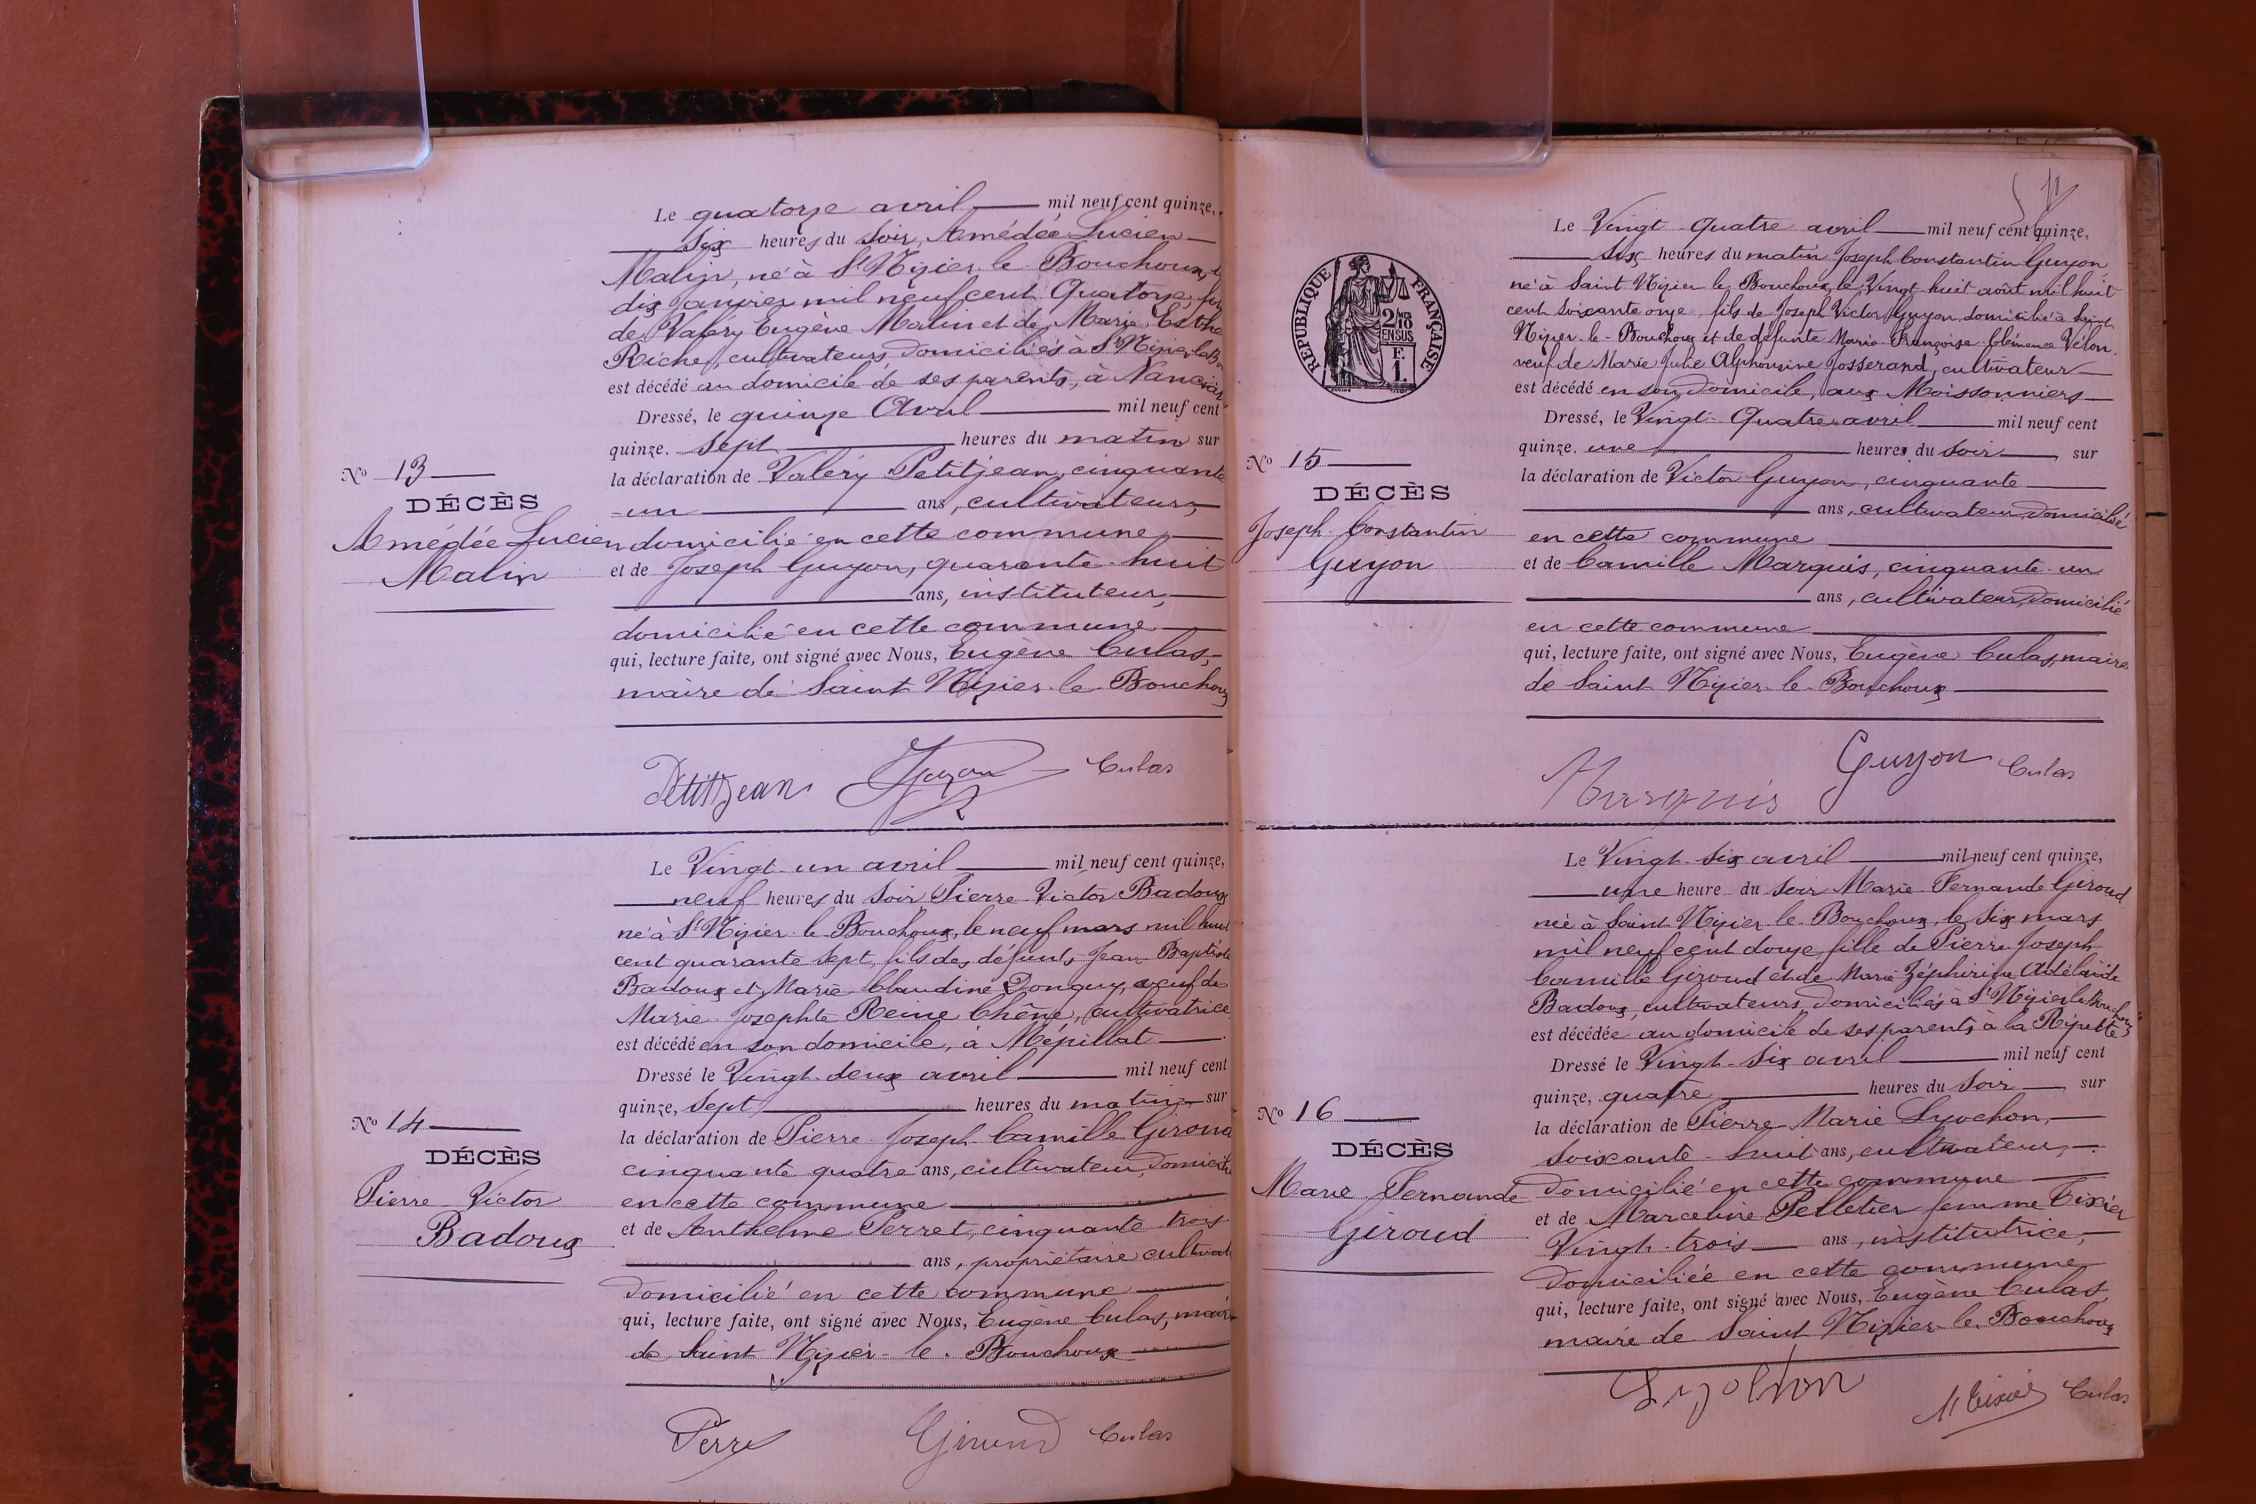 Le quatorze avril mil neuf cent quinze,
Six heures du Soir, Amédée Lucien
Malin, né à St Nizier le Bouchoux, le
dix Janvier mil neuf cent Quatorze, fils
de Valéry Eugène Malin et de Marie Esthe
Riche, cultivateurs, domiciliés à St Nizier le B
est décédé au domicile de ses parents, à
Dressé, le quinze Avril mil neuf cent
quinze. Sept heures du matin sur
No 13
la déclaration de Valéry Petitjean, cinquante
DÉCÈS
un ans, cultivateur,
Amédée Lucien
domicilié en cette commune
Malin
et de Joseph Guyon, quarante-huit
ans, instituteur,
domicilié en cette commune
qui, lecture faite, ont signé avec Nous, Eugène Culas,
maire de Saint Nizier-le-Bouchoux
Petitjean Guyon Culas
Le Vingt-un avril mil neuf cent quinze,
neuf heures du Soir, Pierre Victor Badoux
né à St Nizier-le-Bouchoux, le neuf mars mil huit
cent quarante sept, fils des défunts Jean Baptiste
Badoux et Marie Claudine Donguy, veuf de
Marie-Josephte Reine Chêne, cultivatrice
est décédé en son domicile, à Mépillat
Dressé le Vingt-deux avril mil neuf cent
quinze, Sept heures du matin sur
No 14
la déclaration de Pierre Joseph Camille Giroud
DÉCÈS
cinquante quatre ans, cultivateur, domicilié
Pierre Victor
en cette commune
Badoux
et de Anthelme Perret, cinquante-trois
ans, propriétaire cultivat
domicilié en cette commune
qui, lecture faite, ont signé avec Nous, Eugène Culas, maire
de Saint Nizier-le-Bouchoux
Perret Giroud Culas
11
Le Vingt-Quatre avril mil neuf cent quinze,
Six heures du matin Joseph Constantin Guyon,
né à Saint Nizier le Bouchoux, le Vingt huit août mil huit
cent soixante onze, fils de Joseph Victor Guyon domicilié à Saint
Nizier-le-Bouchoux et de défunte Marie-Françoise-Clémence Vélon,
veuf de Marie Julie Alphonsine Josserand, cultivateur
est décédé en son domicile, aux Moissonniers
RÉPUBLIQUE FRANÇAISE
2/10 EN SUS
F.
1.
Dressé, le Vingt-Quatre avril mil neuf cent
quinze. une heure du soir sur
No 15
la déclaration de Victor Guyon, cinquante
DÉCÈS
ans, cultivateur, domicilié
Joseph-Constantin
en cette commune
Guyon
et de Camille Marquis, cinquante-un
ans, cultivateur, domicilié
en cette commune
qui, lecture faite, ont signé avec Nous, Eugène Culas, maire
de Saint Nizier-le-Bouchoux
Marquis Guyon Culas
Le Vingt-six avril mil neuf cent quinze,
une heure du Soir Marie-Fernande Giroud
née à Saint Nizier-le-Bouchoux, le Six mars
mil neuf cent douze, fille de Pierre Joseph
Camille Giroud et de Marie Zéphirine Adélaïde
Badoux, cultivateurs, domiciliés à St Nizier le Bouchoux
est décédée au domicile de ses parents, à la Ripette
Dressé le Vingt-six avril mil neuf cent
quinze, quatre heures du Soir sur
No 16
la déclaration de Pierre Marie Lyochon,
DÉCÈS
soixante-huit ans, cultivateur,
Marie Fernande
domicilié en cette commune
et de Marceline Pelletier femme Tixier
Giroud
Vingt-trois ans, institutrice,
domiciliée en cette commune
qui, lecture faite, ont signé avec Nous, Eugène Culas,
maire de Saint Nizier-le-Bouchoux
Lyochon M Tixier Culas